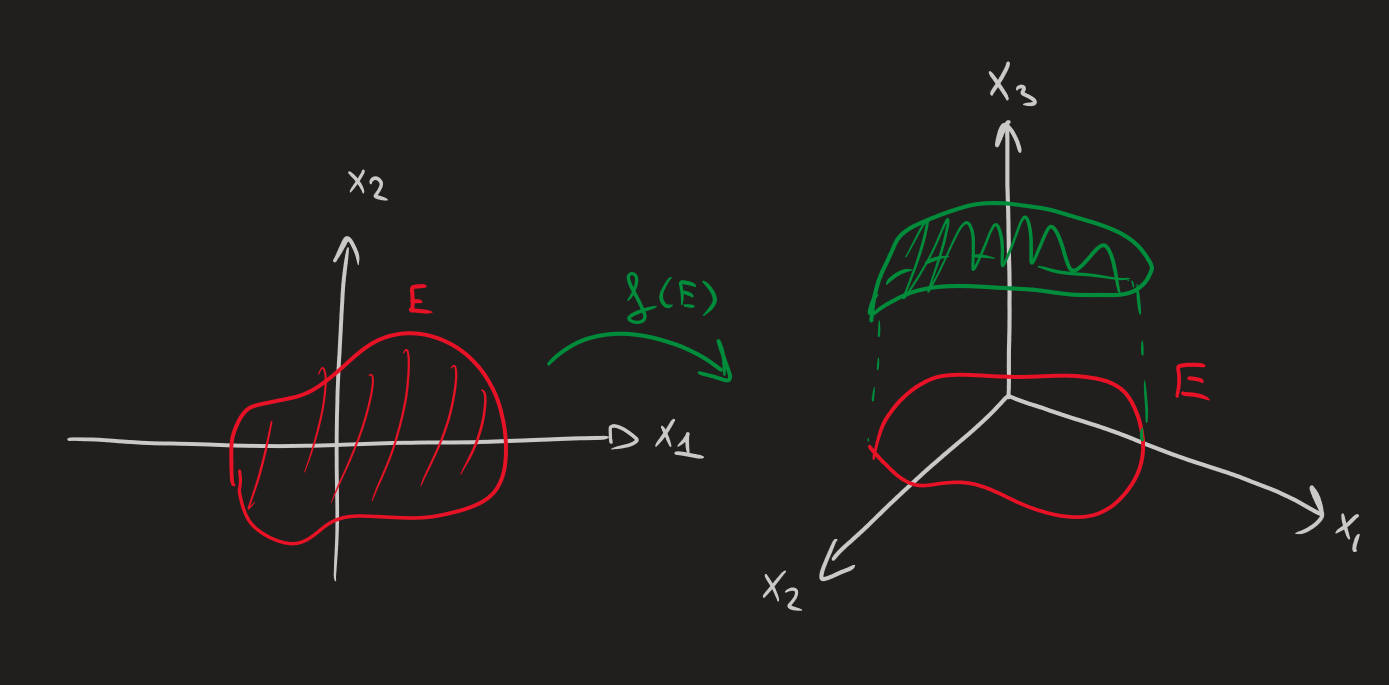 x2
E
x1
f(E)
x3
E
x1
x2